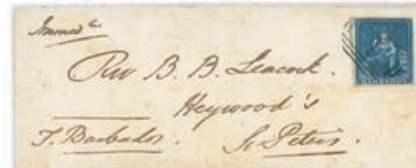 Immed^te
Rev B. B. Leacock.
Heywood's
F. Barbados. St. Peters.